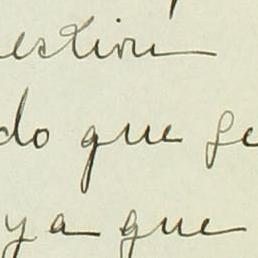 estión
do que ge
ya que